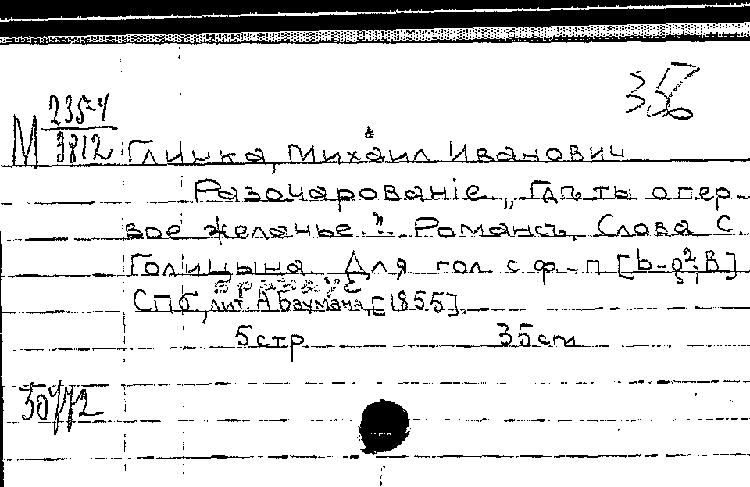 356
М 235-4
3812
Глинка, Михаил Иванович
Разочарованіе „Гдѣ ты о пер-
вое желанье." Романсъ. Слова С.
Голицына Для гол. с ф-п [b-g²; B]
СПб, лит. А Баумана, [1855].
5 стр 35 cm